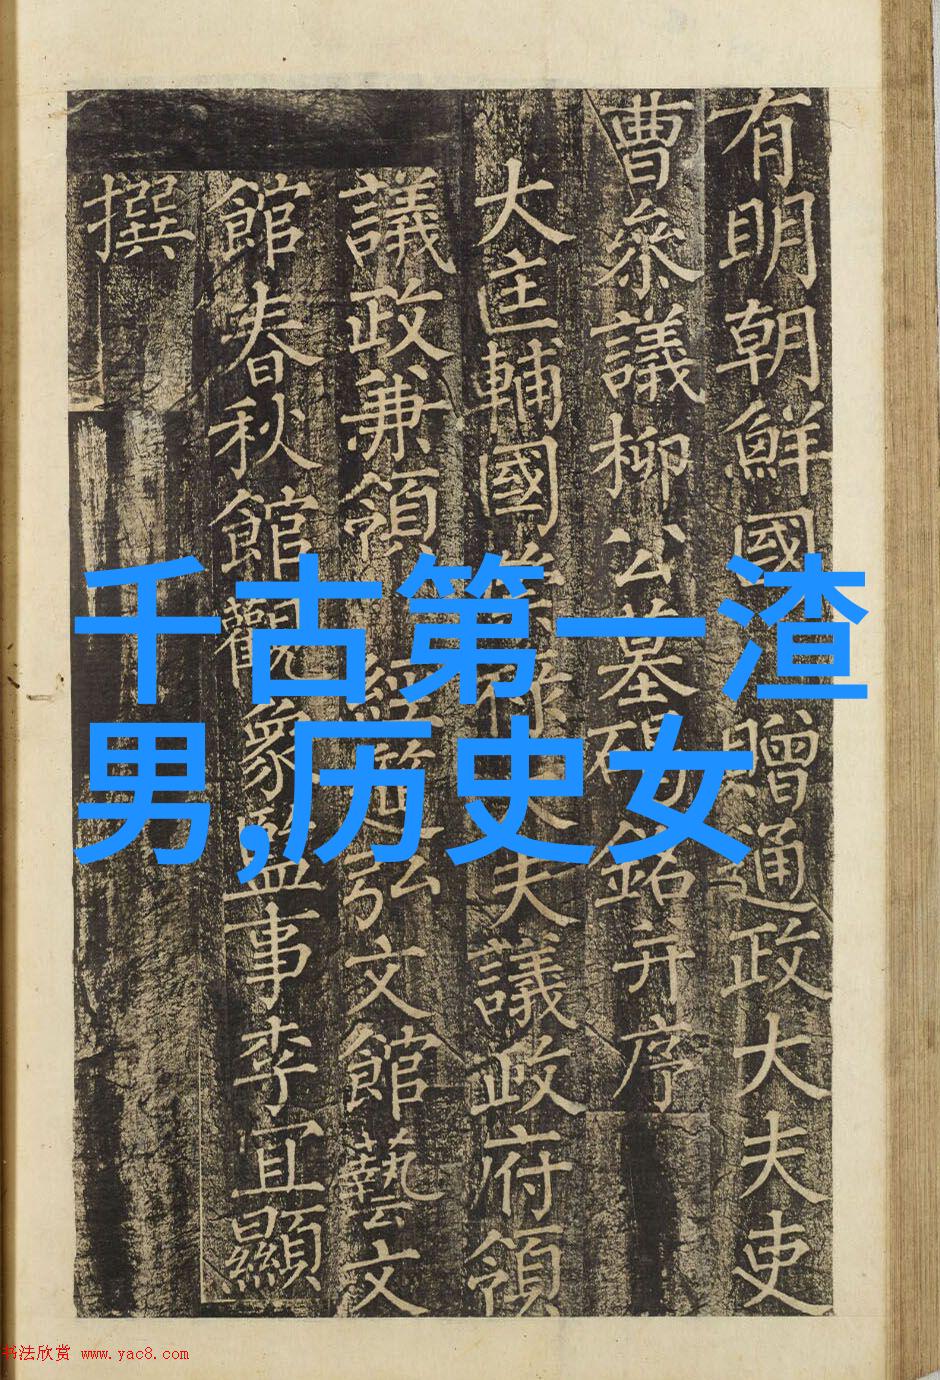 有明朝鮮國贈通政大夫吏
曹參議柳公墓碣銘并序
大匡輔國大夫議政府領
議政兼領經筵弘文館藝文
館春秋館觀象監事李宜顯
撰
千古第一渣
男,历史女
书法欣赏 www.yac8.com